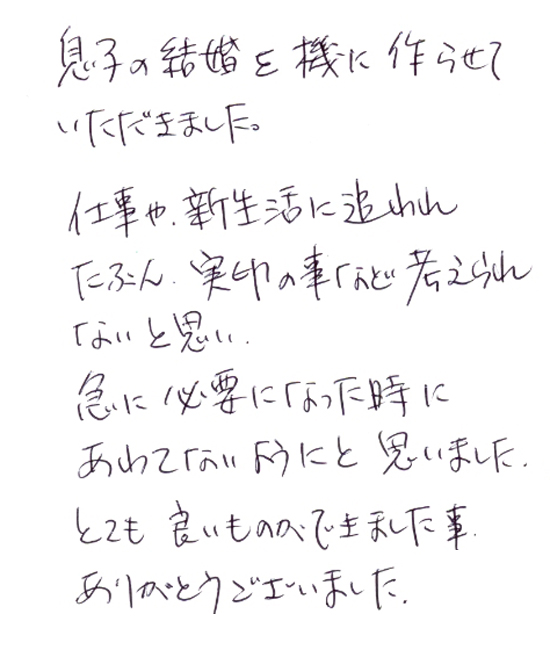 息子の結婚を機に作らせて
いただきました。
仕事や、新生活に追われ
たぶん、実印の事など考えられ
ないと思い、
急に必要になった時に
あわてないようにと思いました。
とても良いものができました事、
ありがとうございました。